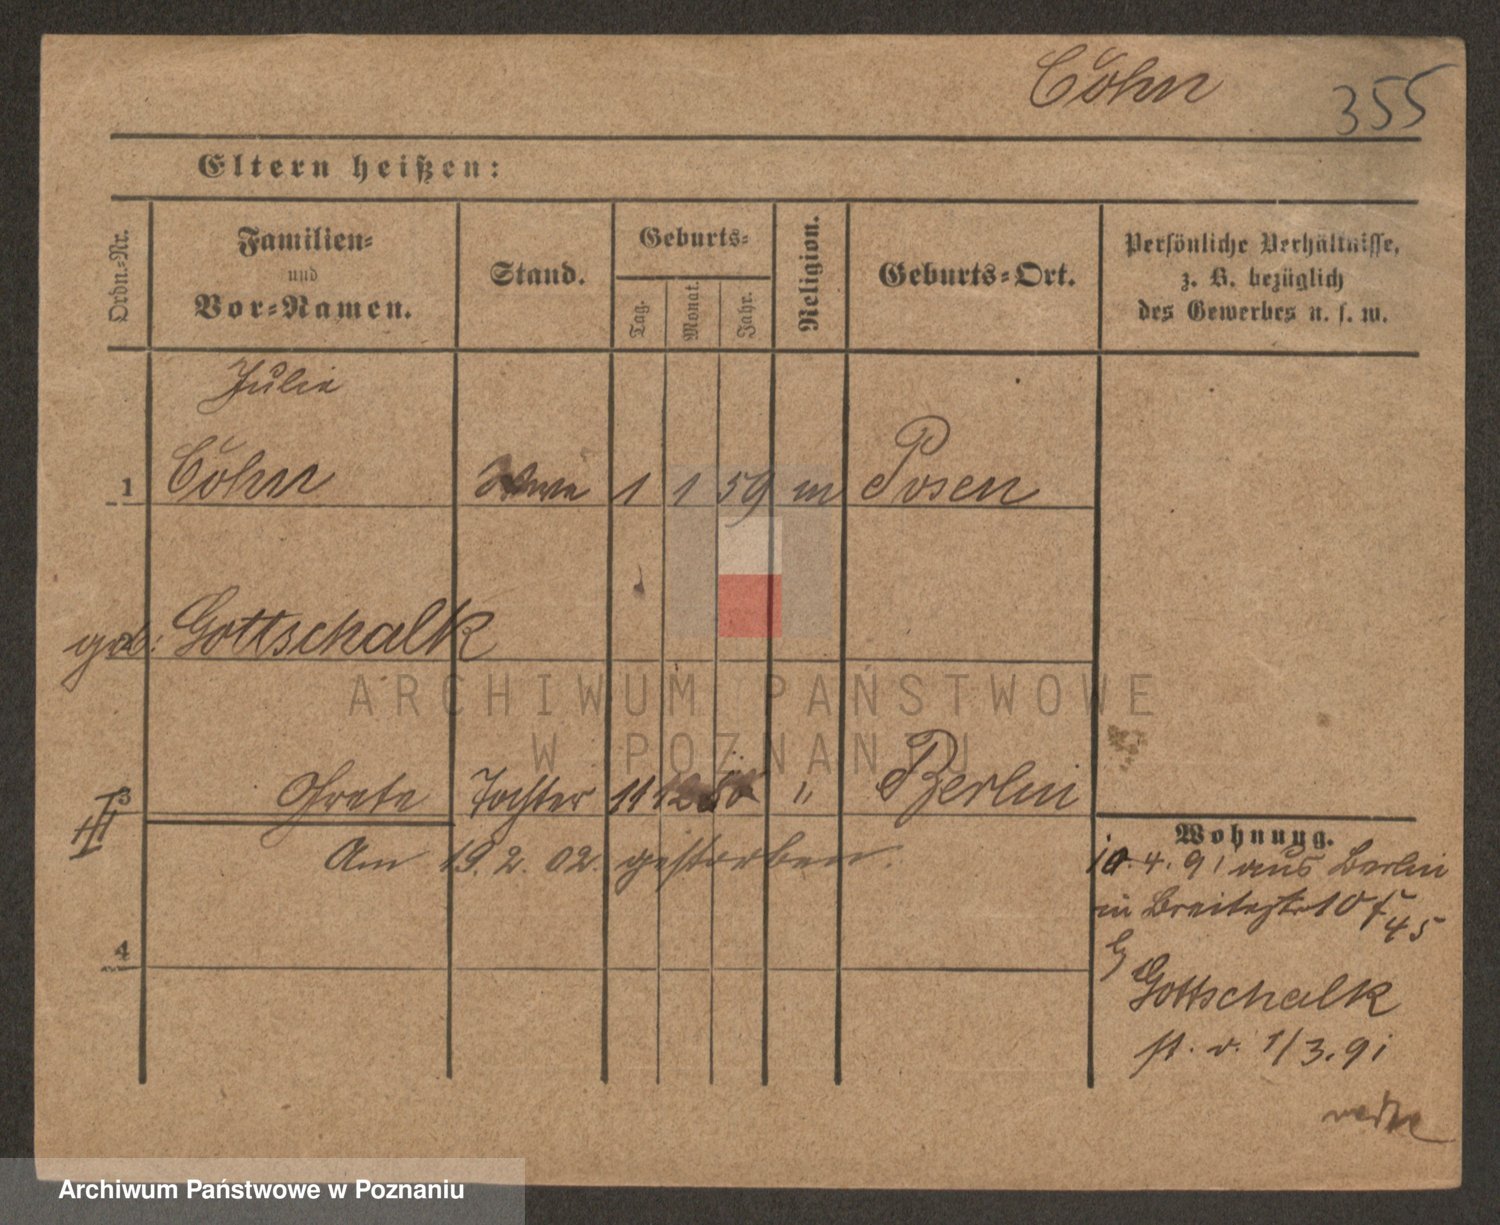 Cŏhn 355
Eltern heißen:
Ordn.-Nr.
Familien-
und
Vor-Namen.
Stand.
Geburts-
Tag.
Monat.
Jahr.
Religion.
Geburts-Ort.
Persönliche Verhältnisse,
z. B. bezüglich
des Gewerbes u. s. w.
Julie
1 Cŏhn 1 1 59 m Posen
geb: Gottschalk
3 Grete Tochter 11 12 " Berlin
Am 19. 2. 02. gestorben.
4
Wohnung.
10. 4. 91 aus Berlin
in Breitestr 10
45
Gottschalk
st. v. 1/3. 91
ARCHIWUM PAŃSTWOWE
W POZNANIU
Archiwum Państwowe w Poznaniu